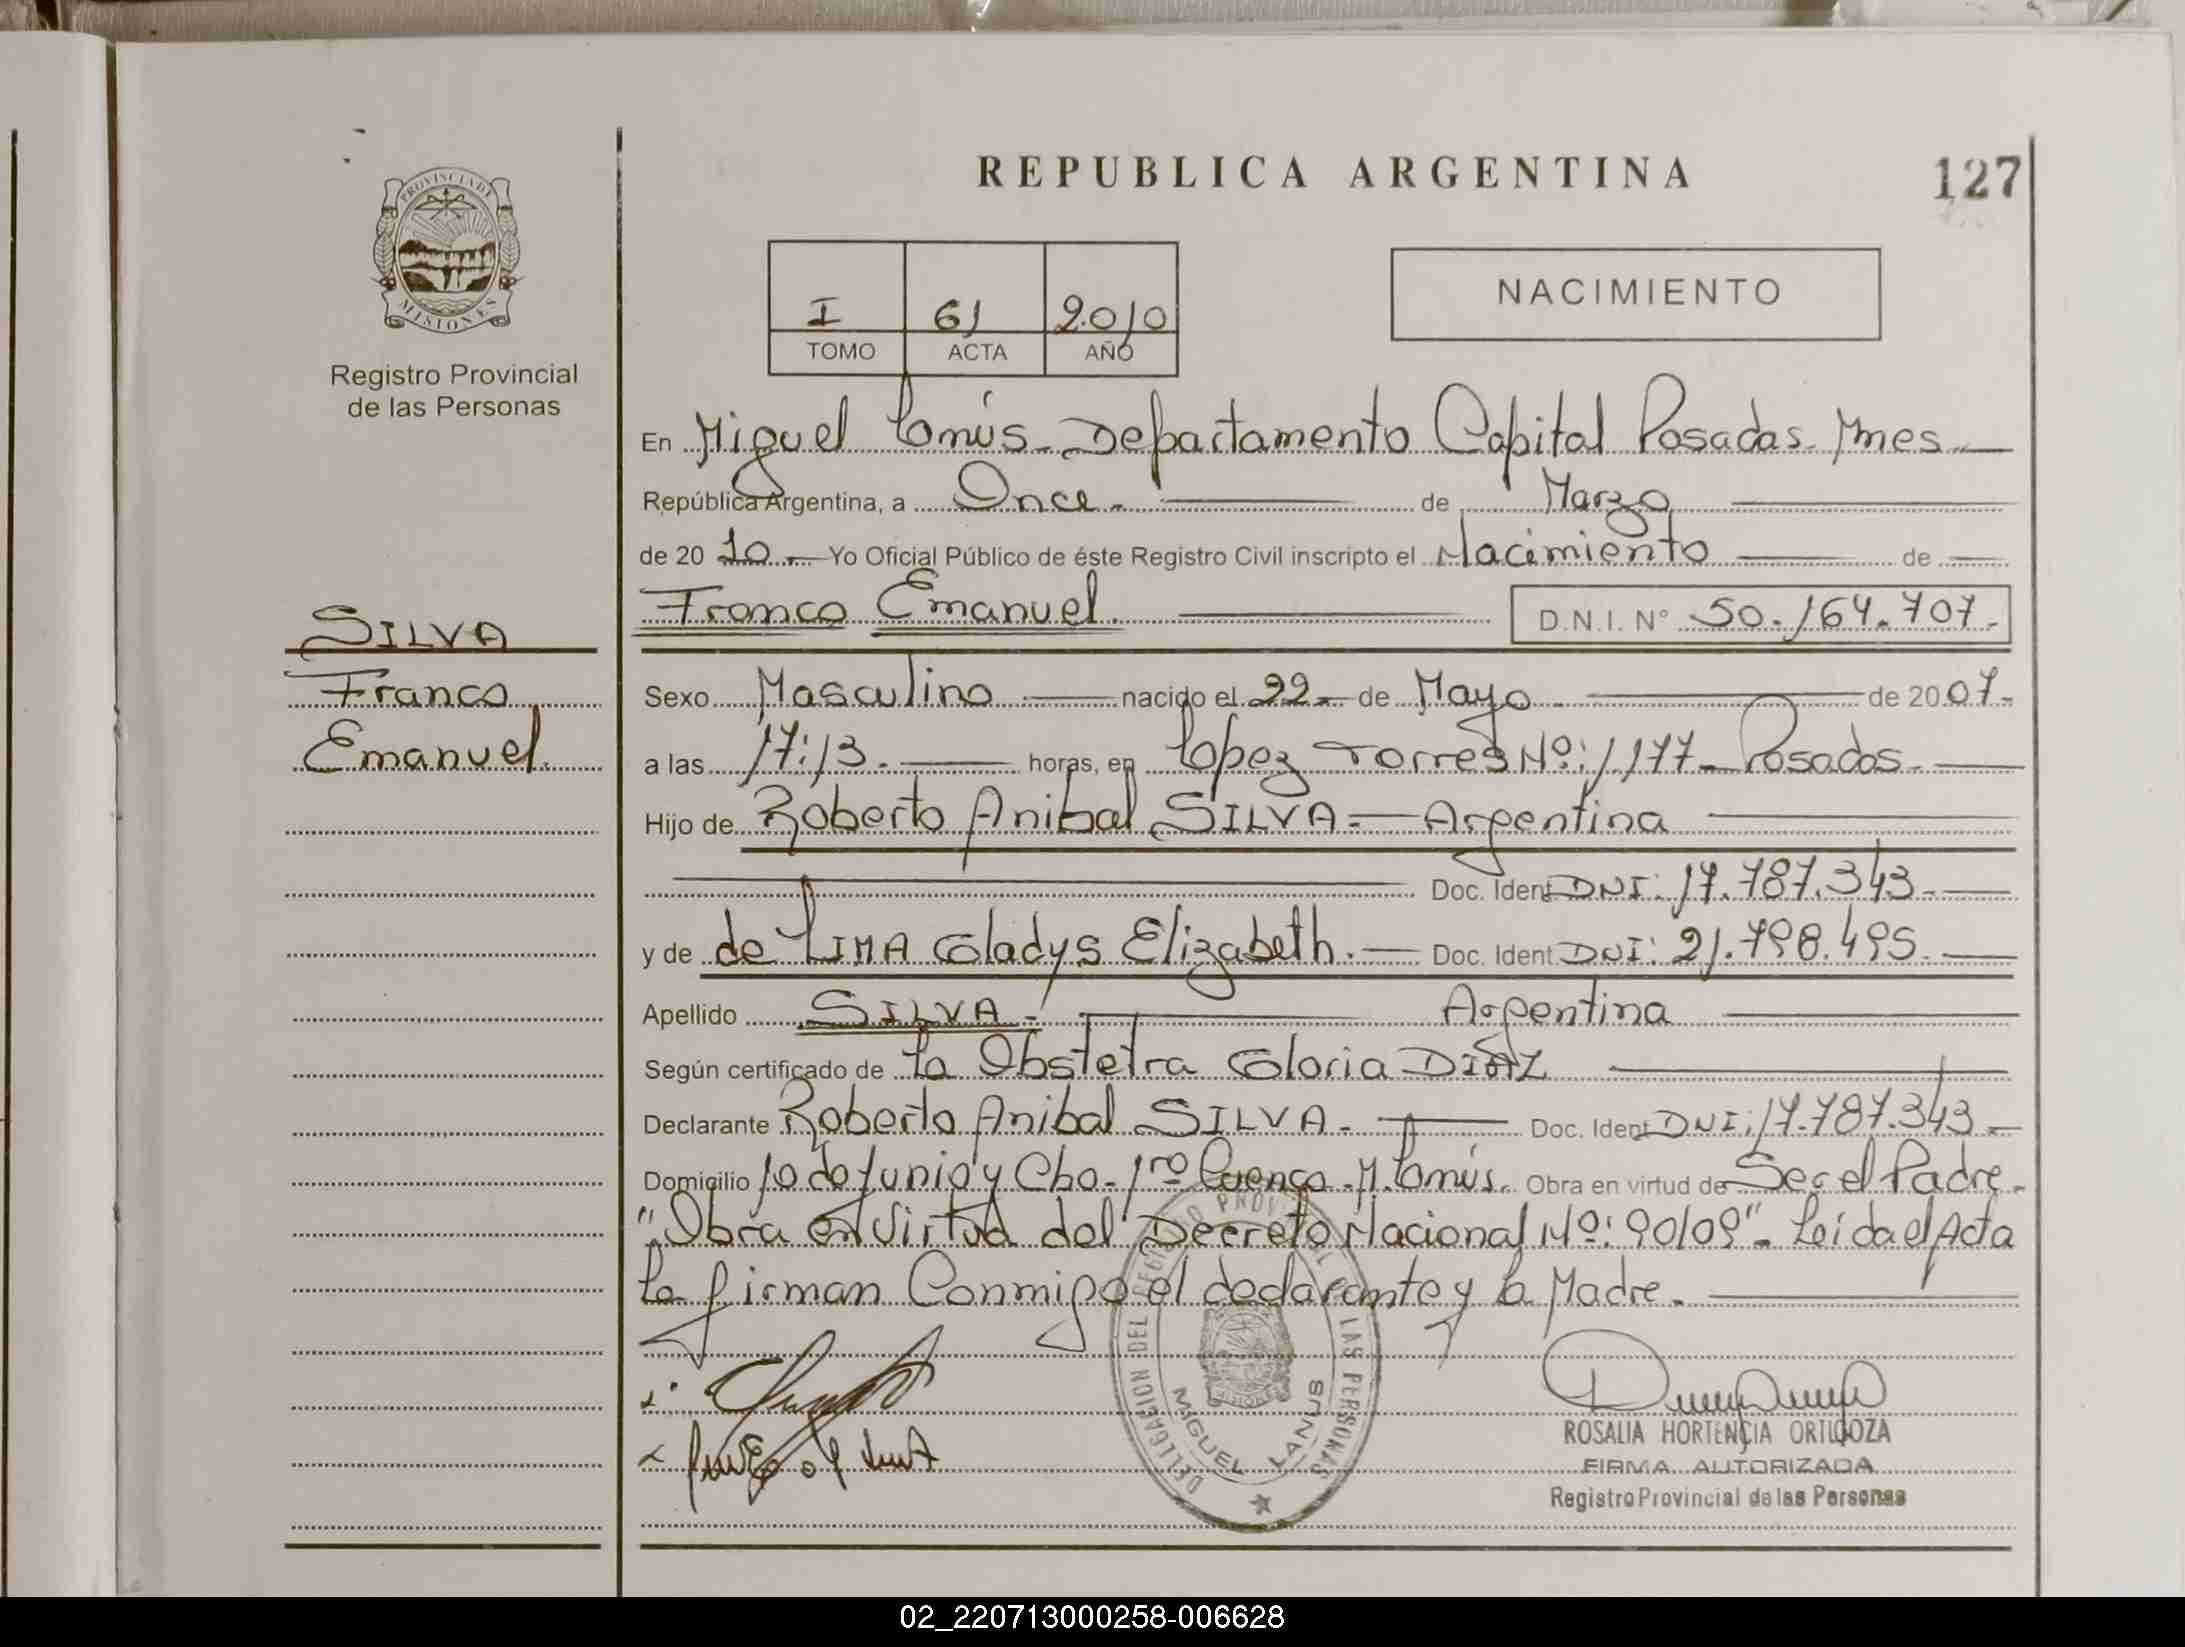 REPUBLICA ARGENTINA
127
PROVINCIA DE
MISIONES
Registro Provincial
de las Personas
I 61 2010
TOMO ACTA AÑO
NACIMIENTO
En Miguel Lanús - Departamento Capital Posadas - Mnes
República Argentina, a Once.- de Marzo
de 20 10.- Yo Oficial Público de éste Registro Civil inscripto el Nacimiento de
Franco Emanuel. D.N.I. Nº 50.164.707.-
SILVA
Franco
Emanuel.
Sexo Masculino nacido el 22.- de Mayo de 2007.-
a las 17:13.- horas, en Lopez Torres Nº: 1177 - Posadas.-
Hijo de Roberto Anibal SILVA.- Argentina
Doc. Ident. DNI: 17.787.343.-
y de de LIMA Gladys Elizabeth.- Doc. Ident. DNI: 21.798.495.-
Apellido SILVA.- Argentina
Según certificado de La Obstetra Gloria DIAZ
Declarante Roberto Anibal SILVA.- Doc. Ident. DNI: 17.787.343.-
Domicilio 10 de Junio y Cho. 1ro M. Lanús. Obra en virtud de Ser el Padre.-
"Obra en Virtud del Decreto Nacional Nº: 90/09".- Leida el Acta
La firman Conmigo el declarante y la Madre.-
DELEGACION DEL REGISTRO PROVINCIAL DE LAS PERSONAS
MIGUEL LANUS
ROSALIA HORTENCIA ORTIGOZA
FIRMA AUTORIZADA
Registro Provincial de las Personas
02_220713000258-006628